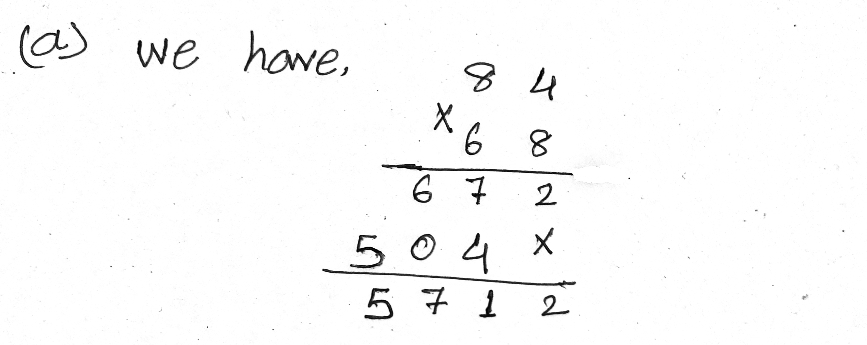 (a) we have,
8 4
× 6 8
6 7 2
5 0 4 ×
5 7 1 2